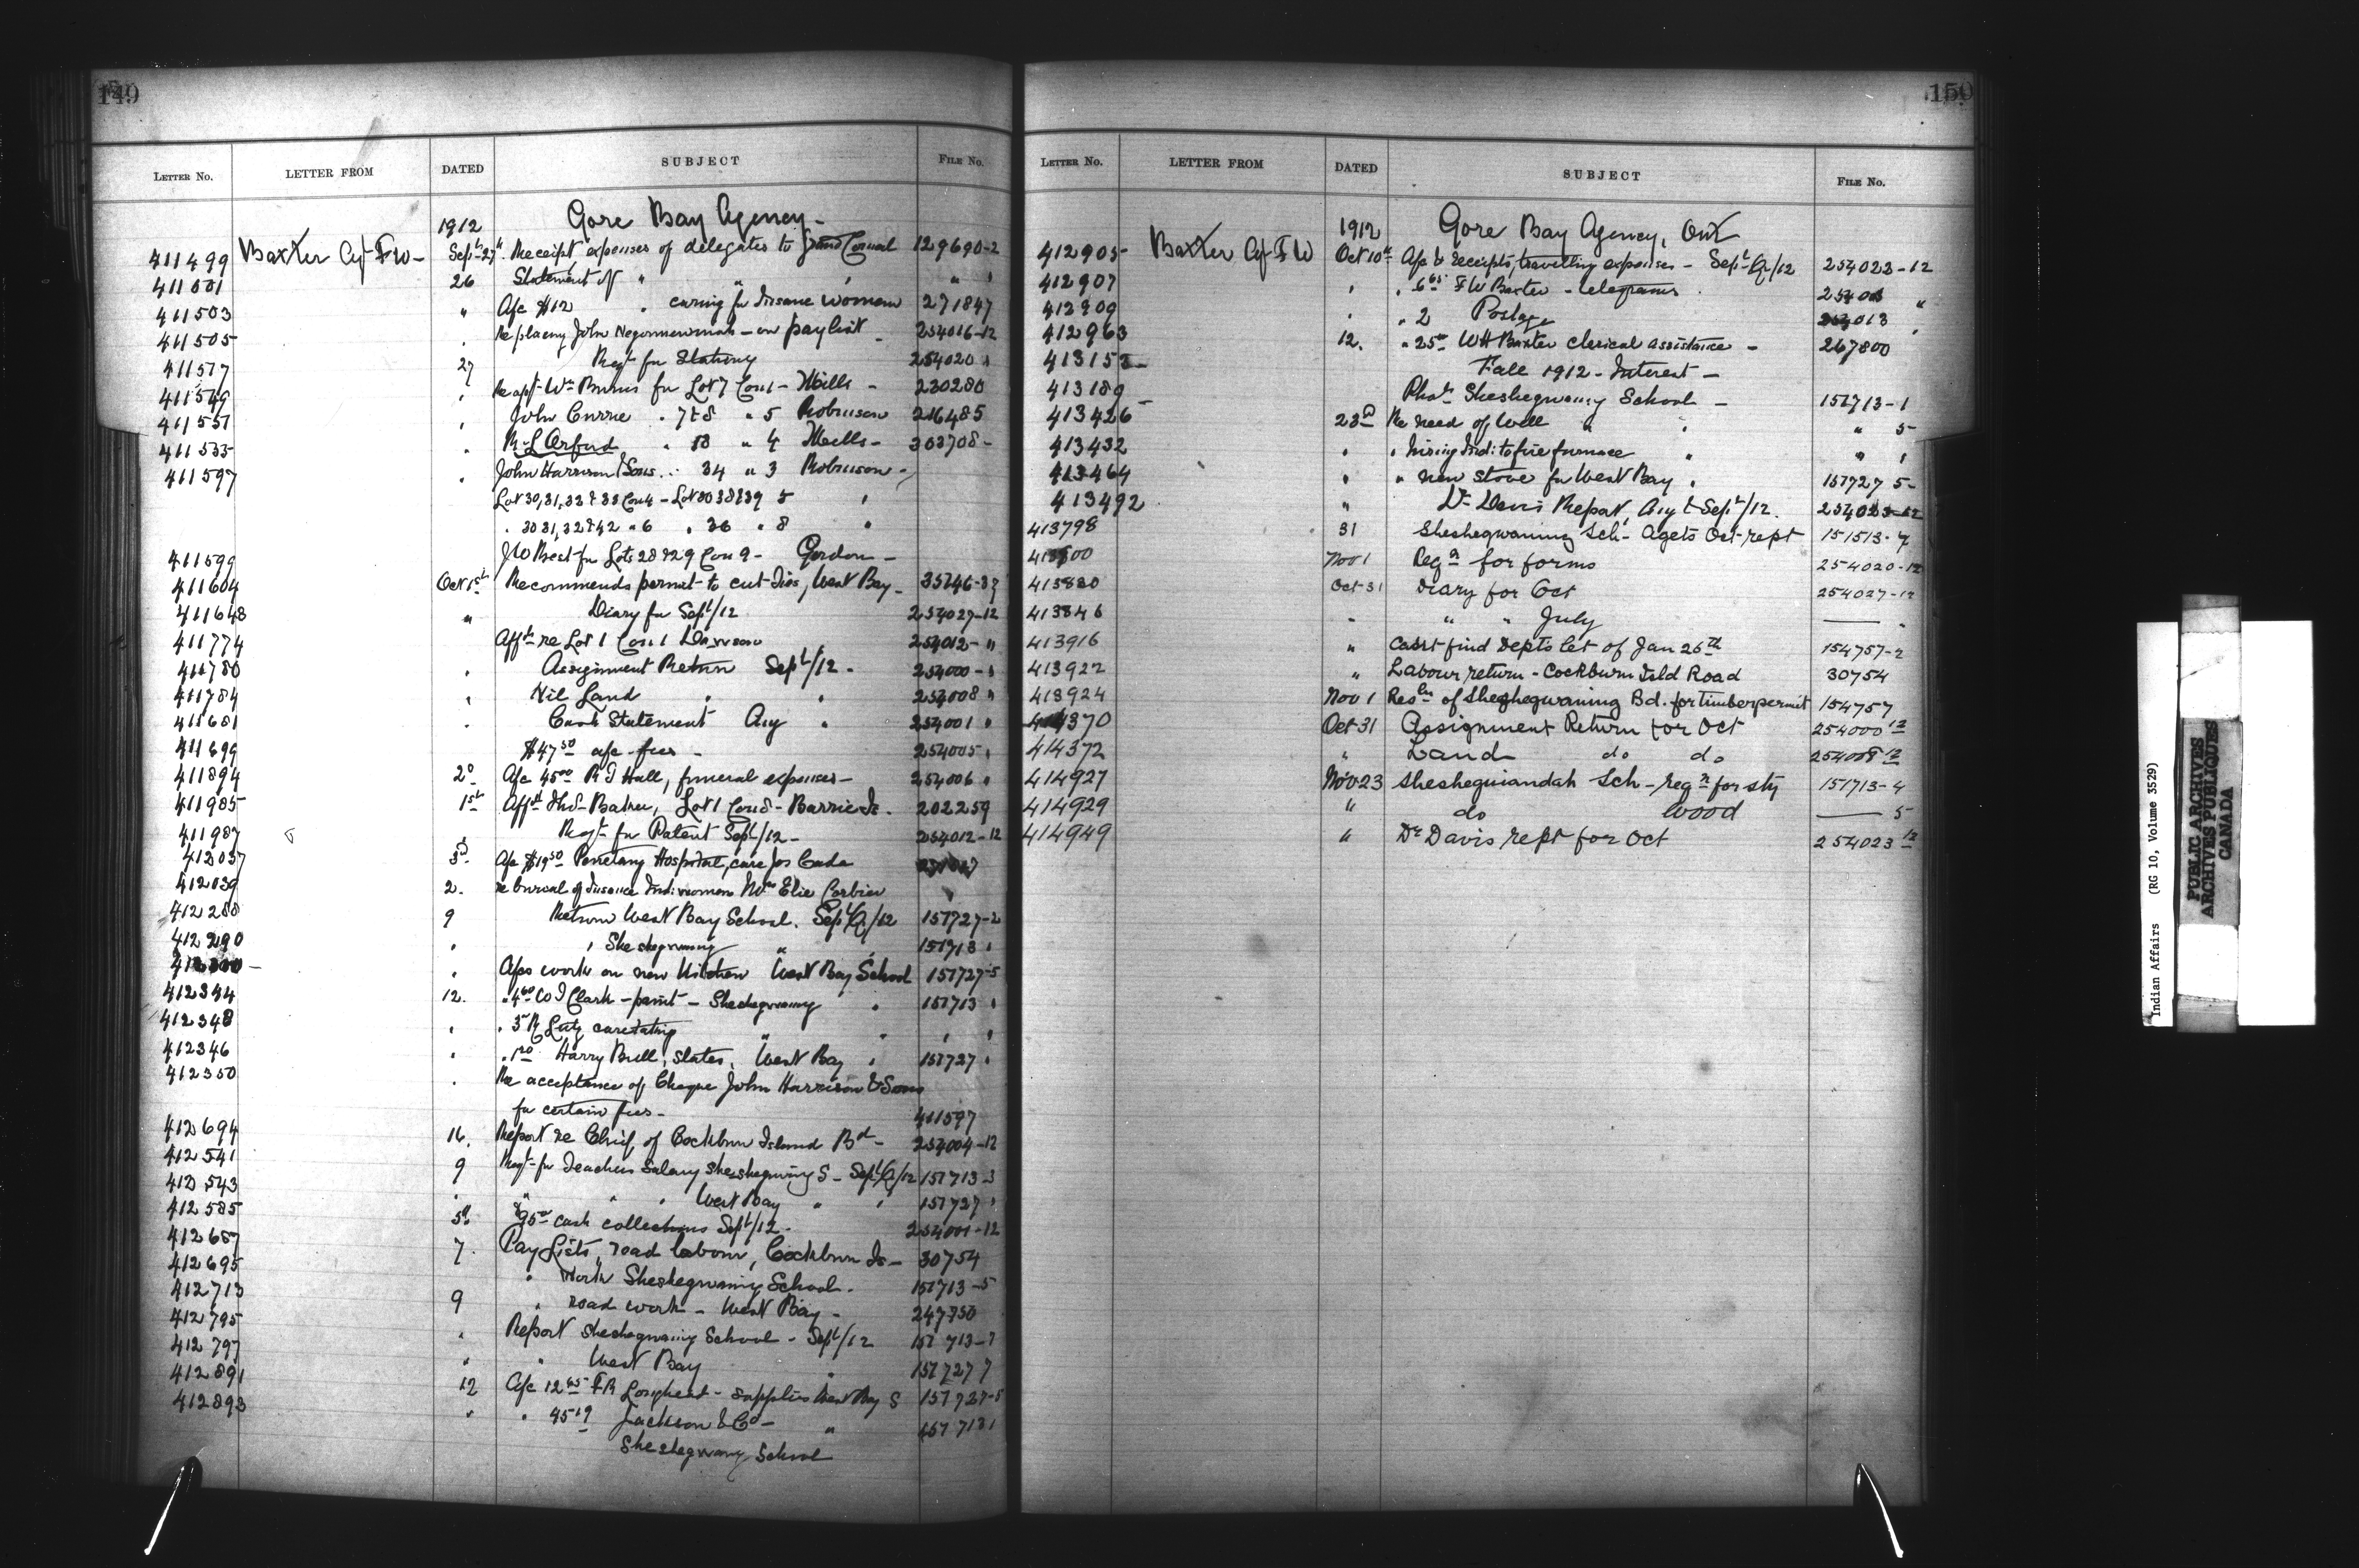 149
LETTER No. LETTER FROM DATED SUBJECT FILE No.
1912 Gore Bay Agency-
411499 Baxter Agt F W- Sept 27th Receipt expenses of delegates to Grand Council 129690-2
411501 26 Statement of " " " " "
411503 " A/c $12 " caring for Insane women 271847
411505 Re placing John on paylist 254016-12
411517 27 Reqt for Stationy 254020 "
411549 Re appt Wm Burns for Lot 7 Con 1 - Mills - 230280
411551 John Currie . 7 & 8 " 5 Robinson 216485
411555 R. L Orford . 13 " 4 Mills- 303708-
411597 John Harrison & Sons . 34 " 3 Robinson -
Lot 30,31,32 & 33 Con 4 - Lot 30 38 & 39 5 "
. 30 31,32 & 42 " 6 . 36 " 8 "
411599 J W Best for Lots 28 & 29 Con 9- Gordon-
411604 Oct 1st Recommends permit to cut ties, West Bay- 35246-37
411648 " Diary for Sept/12 254027-12
411774 Affts re Lot 1 Con 1 Dawson 254012- "
411780 Assignment Return Sept/12 - 254000 - "
411784 Nil Land " " 254008 "
411681 Cash Statement Aug " 254001 "
411699 $47 50 a/c fees - 254005 "
411894 2d A/c 45 00 R J Hall, funeral expenses- 254006 "
411985 1st Afft Thos. Batman, Lot 1 Con 8 - Barrie Is. 202259
411987 Reqt for Patent Sept/12- 254012-12
412037 3d A/c $19 50 Penetang Hospital, care Jos
412039 2. re burial of Insane Indi women Mrs Elie Corbier
412288 9 Return West Bay School. Sept Qr/12 151727-2
412290 " Sheshegwaning " " 151713 "
A/cs work on new Kitchen West Bay School 151727-5
412344 12. W J Clark - paint - Sheshegwaning " 151713 "
412348 . 3 R Lutz caretaking " " " "
412346 . Harry Bull, slates, West Bay " 151727 "
412350 Re acceptance of Cheque John Harrison & Sons
for certain fees- 411597
412694 16. Report re Chief of Cockburn Island Bd- 254004-12
412541 9 Reqt for Teachers Salary Sheshegwaning S- Sept Qr/12 151713-3
412543 " " " West Bay " " 151727 "
412585 5th $95 00 cash collections Sept/12- 254001-12
412687 7. Pay Lists, road labour, Cockburn Is- 30754
412695 " Work Sheshegwaning School. 151713-5
412713 9 " road work - West Bay- 247750
412795 " Report Sheshegwaning School - Sept/12 151713-7
412797 " " West Bay " 151727 7
412891 12 A/c 12 65 F R Loughead - supplies West Bay S 151727-5
412893 " " 45 19 Jackson & Co- " 151713
Sheshegwaning School
150
LETTER No. LETTER FROM DATED SUBJECT FILE No.
1912 Gore Bay Agency, Ont
412905 Baxter Agt F W Oct 10th A/c & receipts, travelling expenses - Sept Qr/12 254022-12
412907 " " 6 65 F W Baxter - telegrams "
412909 " " 2 Postage 254013 "
412963 12. " 25 00 W H Baxter clerical assistance - 267800
413152- Fall 1912 - Interest -
413189 - Sheshegwaning School - 151713-1
413426 23d Re need of Well " " " 5-
413432 " " hiring Indi to fire furnace " " "
413464 " " new stove for West Bay " 151727 5-
413492 " Dr Davis Report, Aug & Sept/12. 254023-12
413798 31 Sheshegwaning Sch- Agets Oct-rept 151513-7
413800 Nov 1 Reqn for forms 254020-12
413820 Oct-31 Diary for Oct 254027-12
413846 " " " July — "
413916 " Can't find Depts let of Jan 26th 154757-2
413922 " Labour return - Cockburn Isld Road 30754
413924 Nov 1 Resln of Sheshegwaning Bd. for timber permit 154757
414370 Oct 31 Assignment Return for Oct 254000 12
414372 " Land do do 254008 12
414927 Nov 23 Sheshequiandah Sch - reqn for sty 151713-4
414929 " do Wood — 5
414949 " Dr Davis rept for Oct 254023 12
Indian Affairs (RG 10, Volume 3529)
PUBLIC ARCHIVES
ARCHIVES PUBLIQUES
CANADA